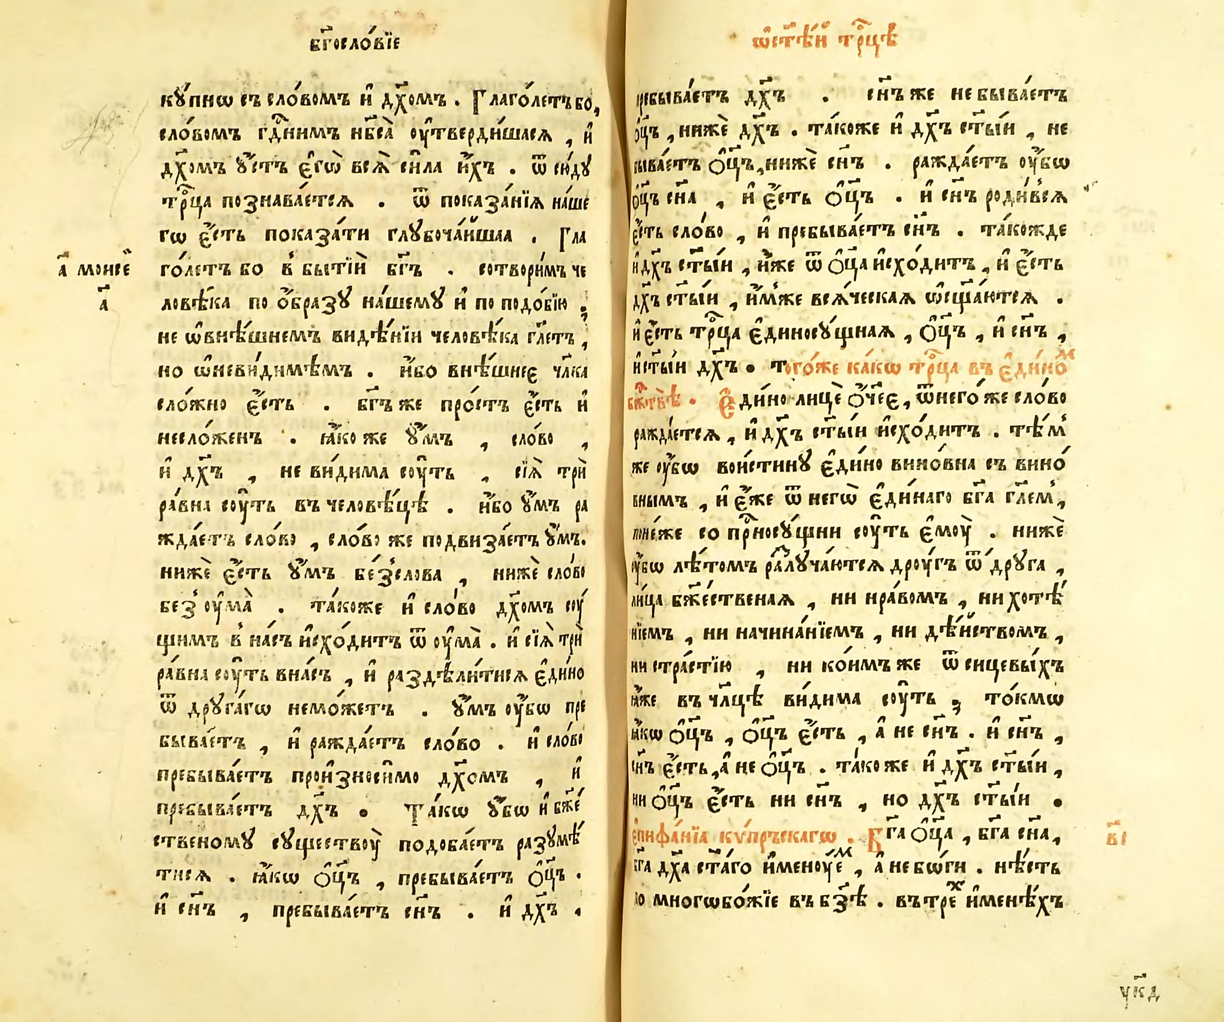 бг҃ослѡ́вїе
кꙋ́пнѡ съ сло́вомъ и҆ дх҃омъ . Глаго́летъ бо,
сло́вомъ гд҇нимъ нб҃са̀ ᲂу҆тверди́шасѧ , и҆
дх҃омъ ᲂу҆стъ є҆гѡ̀ всѧ̀ си́ла и҆́хъ . ѿ сю́дꙋ
трⷪ҇ца познава́етсѧ . ѿ показа́нїѧ на́ше
гѡ є҆́сть показа́ти глꙋбоча́йшаѧ . Гла
го́летъ бо в бытїѝ бг҃ъ . сотвори́мъ че
ловѣ́ка по ѻ҆́бразꙋ на́шемꙋ и҆ по подо́бїю ;
не ѡ҆внѣ́шнемъ видѣ́нїи человѣ́ка гл҃етъ ,
но ѡ҆неви́димѣмъ . и҆́бо внѣ́шнее чл҃ка
сло́жно є҆́сть . бг҃ъ же про́стъ є҆́сть и҆
несло́женъ . ꙗ҆́ко же ᲂу҆́мъ , сло́во ,
и҆ дх҃ъ , не ви́дима сꙋ́ть , сїѧ̀ трѝ
ра́вна сꙋ́ть въ человѣ́цѣ . и҆́бо ᲂу҆́мъ ра
жда́етъ сло́во , сло́во же подвиза́етъ ᲂу҆́мъ.
нижѐ є҆́сть ᲂу҆́мъ без̾ сло́ва , нижѐ сло́во
без̾ ᲂу҆ма̀ . та́коже и҆ сло́во дх҃омъ сꙋ́
щимъ в на́съ и҆схо́дитъ ѿ ᲂу҆ма̀ . и҆ сїѧ̀ трѝ
ра́вна сꙋ́ть в на́съ , и҆ раздѣли́тисѧ є҆ди́но
ѿ дрꙋга́гѡ немо́жетъ . ᲂу҆́мъ ᲂу҆́бѡ пре
быва́етъ , и҆ ражда́етъ сло́во . и҆ сло́во
пребыва́етъ произноси́мо дх҃омъ , и҆
пребыва́етъ дх҃ъ . Та́кѡ ᲂу҆́бѡ и҆ бж҃е
ственомꙋ сꙋществꙋ̀ подоба́етъ разꙋмѣ́
тисѧ . ꙗ҆́кѡ ѻ҆ц҃ъ , пребыва́етъ ѻ҆ц҃ъ .
и҆ сн҃ъ , пребыва́етъ сн҃ъ . и҆ дх҃ъ .
а҃ моисе́й
а҃
ѡ҆ст҃ѣ́й трⷪ҇цѣ
пребыва́етъ дх҃ъ . сн҃ъ же не быва́етъ
ѻ҆ц҃ъ , нижѐ дх҃ъ . та́коже и҆ дх҃ъ ст҃ы́й , не
быва́етъ ѻ҆ц҃ъ, нижѐ сн҃ъ . ражда́етъ ᲂу҆́бѡ
ѻ҆ц҃ъ сн҃а , и҆ є҆́сть ѻ҆ц҃ъ . и҆ сн҃ъ роди́всѧ
є҆́сть сло́во , и҆ пребыва́етъ сн҃ъ . та́кожде
и҆ дх҃ъ ст҃ы́й , и҆́же ѿ ѻ҆ц҃а и҆схо́дитъ , и҆ є҆́сть
дх҃ъ ст҃ы́й , и҆́мже всѧ́ческаѧ ѡ҆сщ҃а́ютсѧ .
и҆ є҆́сть трⷪ҇ца є҆диносꙋ́щнаѧ , ѻ҆ц҃ъ , и҆ сн҃ъ ,
и҆ ст҃ы́й дх҃ъ . того́же ка́кѡ трⷪ҇ца въ є҆ди́номъ
бж҃твѣ̀ . Є҆ди́но лицѐ ѻ҆́чее , ѿ него́ же сло́во
ражда́етсѧ , и҆ дх҃ъ ст҃ы́й и҆схо́дитъ . тѣ́м
же ᲂу҆́бѡ вои́стинꙋ є҆ди́но вино́вна съ вино́
внымъ , и҆ є҆́же ѿ негѡ̀ є҆ди́наго бг҃а гл҃ем ,
поне́же со прⷭ҇носꙋщни сꙋ́ть є҆мꙋ̀ . нижѐ
ᲂу҆́бѡ лѣ́томъ разлꙋча́ютсѧ дрꙋ́гъ ѿ дрꙋ́га ,
лица̀ бж҃е́ственаѧ , ни нра́вомъ , ни хотѣ́
нїемъ , ни начина́нїемъ , ни дѣ́йствомъ ,
ни стра́стїю , ни ко́имъ же ѿ сицевы́хъ
ꙗ҆́же въ чл҃цѣ ви́дима сꙋ́ть ; то́кмѡ
ꙗ҆́кѡ ѻ҆ц҃ъ , ѻ҆ц҃ъ є҆́сть , а҆ не сн҃ъ . и҆ сн҃ъ ,
сн҃ъ є҆́сть, а҆ не ѻ҆ц҃ъ . та́ко же и҆ дх҃ъ ст҃ы́й ,
ни ѻ҆ц҃ъ є҆́сть ни сн҃ъ , но дх҃ъ ст҃ы́й .
є҆пифа́нїа кѵ́прьскагѡ . Бг҃а ѻ҆ц҃а , бг҃а сн҃а ,
бг҃а дх҃а ст҃а́го и҆менꙋ́ем , а҆ не бо́ги . нѣ́сть
бо многѡбо́жїе въ бз҃ѣ . въ трех и҆́менѣхъ
в҃і
ᲂу҆кд